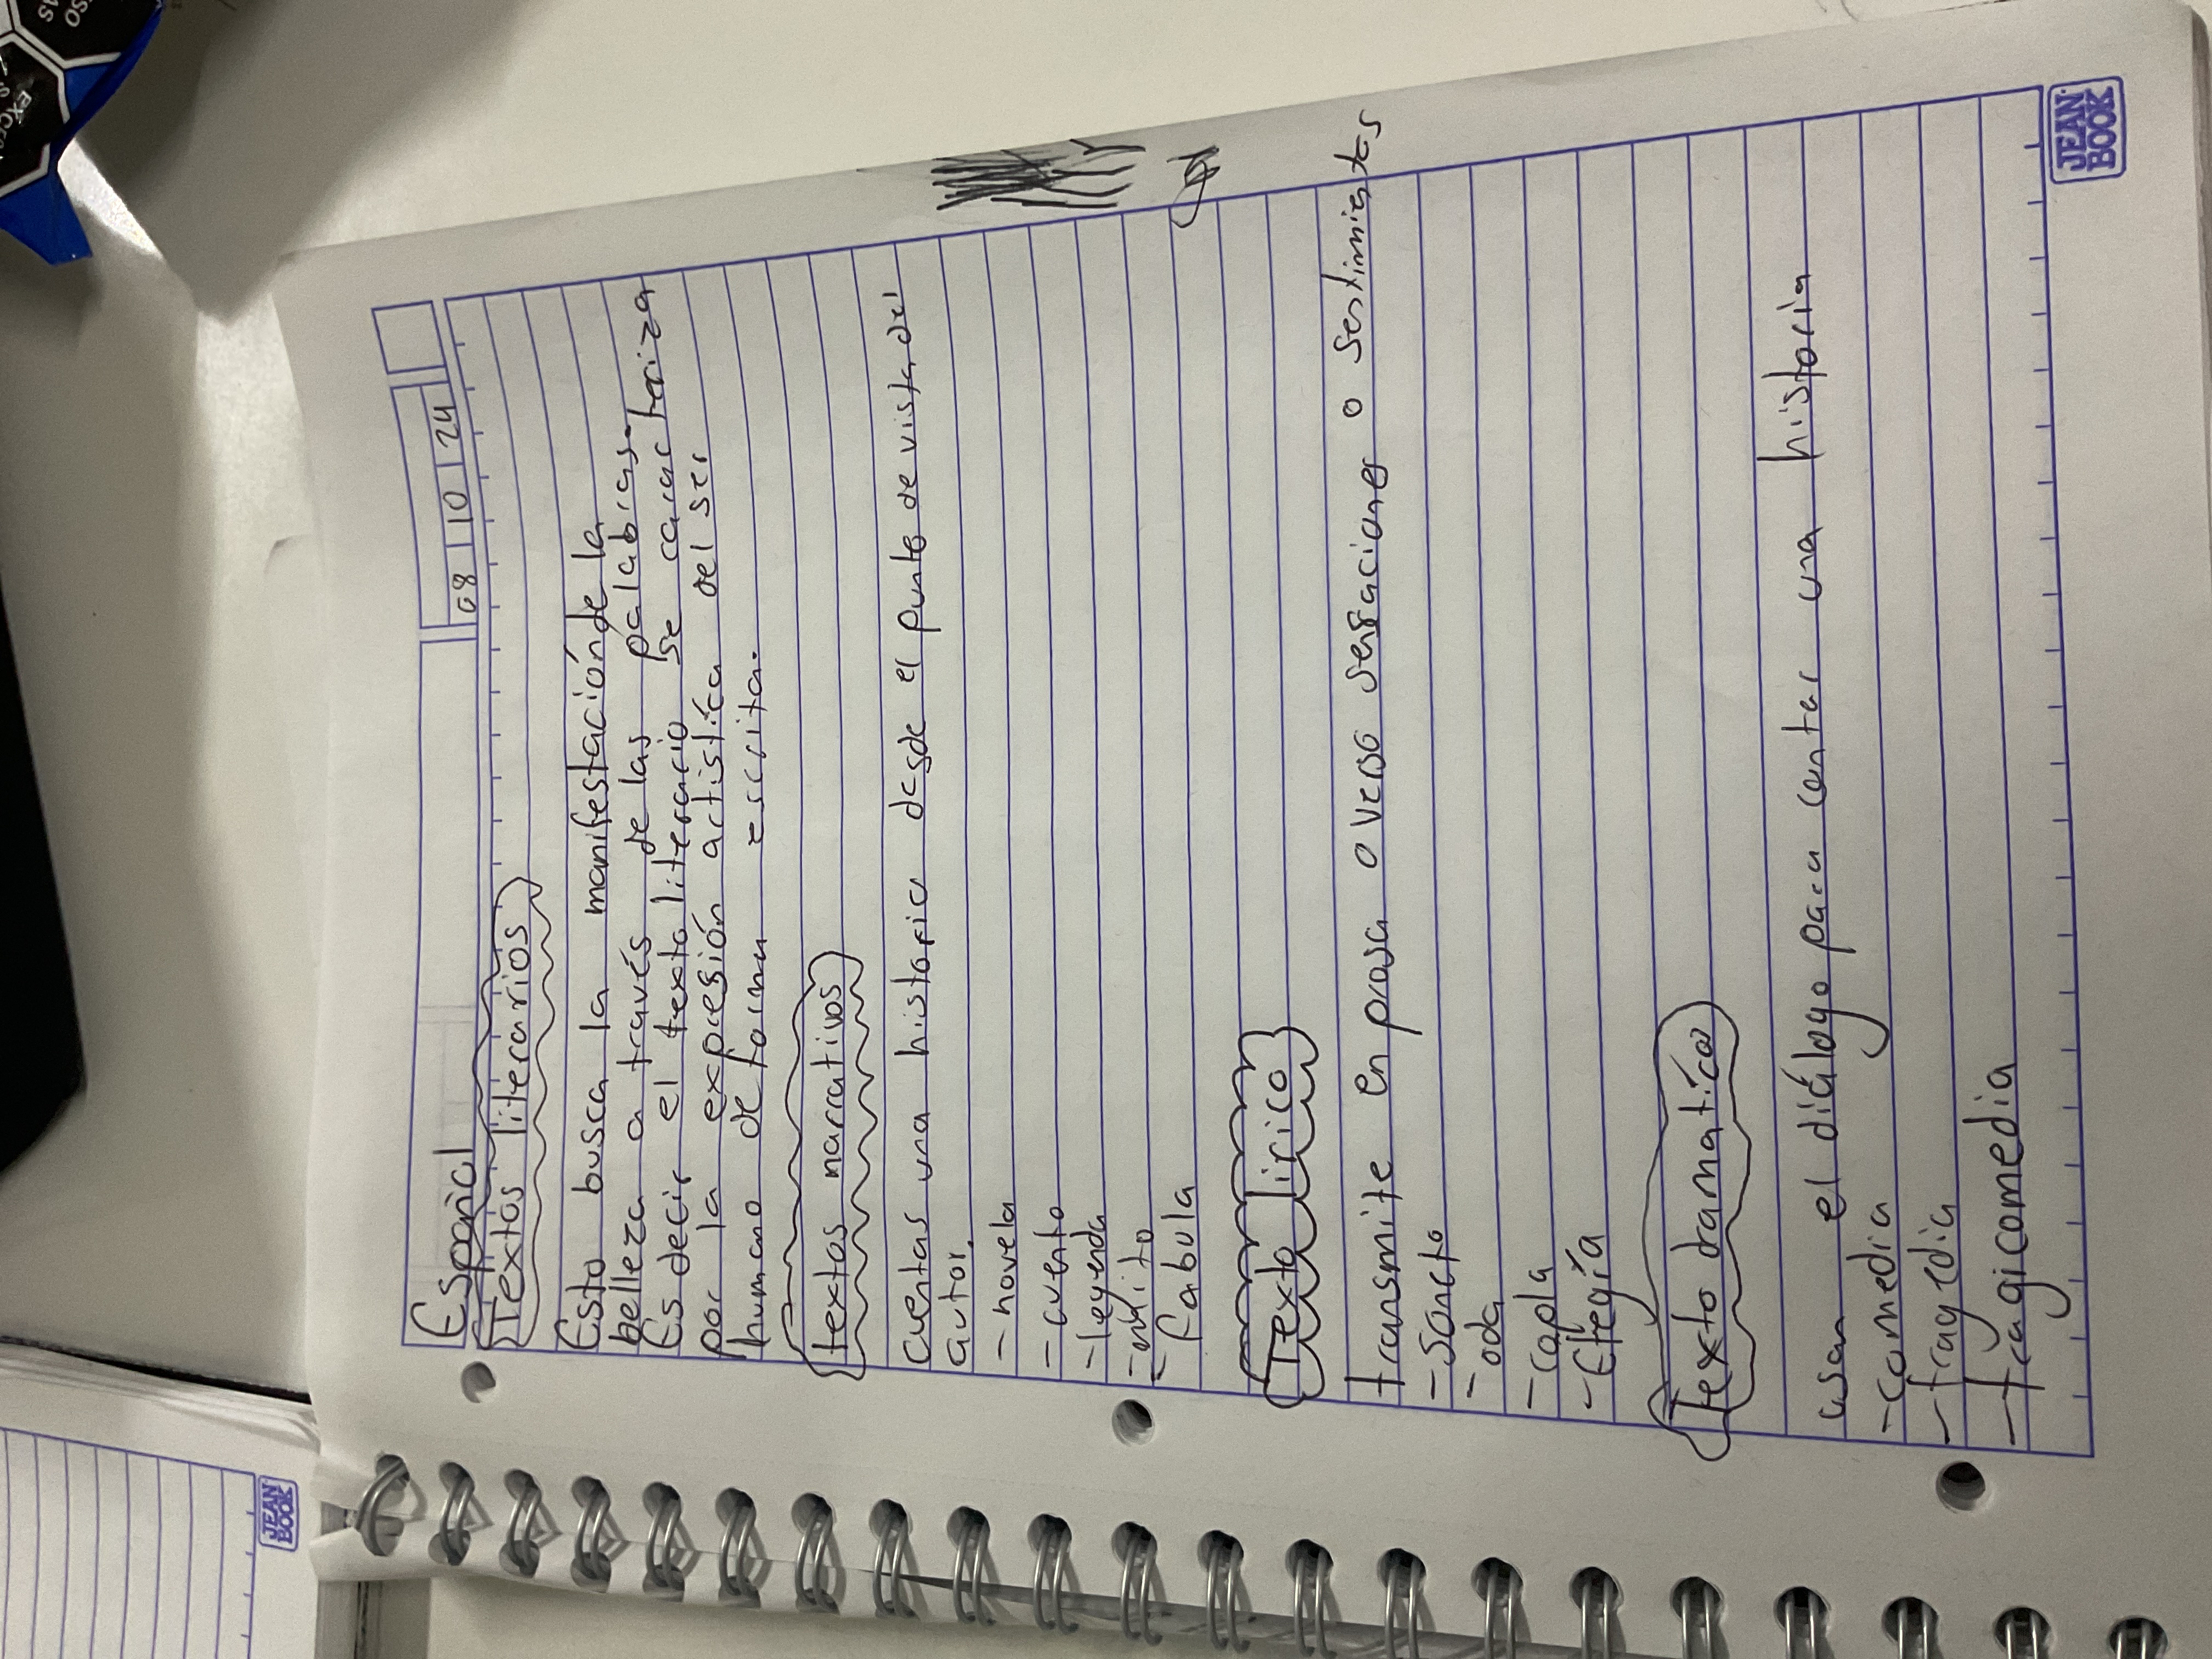 Español
08 10 24
Textos literarios
Esto busca la manifestación de la
belleza a través de las palabras.
Es decir el texto literario se caracteriza
por la expresión artística del ser
humano de forma escrita.
textos narrativos
cuentas una historia desde el punto de vista del
autor.
- novela
- cuento
- leyenda
- mito
- fabula
Texto lirico
transmite en prosa o verso sensaciones o sentimientos
- soneto
- oda
- copla
- Elegía
Texto dramatíco
usan el diálogo para contar una historia
- comedia
- tragedia
- tragicomedia
JEAN
BOOK
JEAN
BOOK